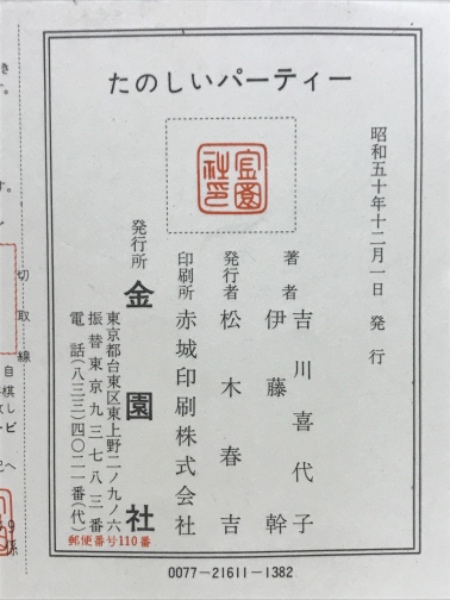 たのしいパーティー
昭和五十年十二月一日 発行
著者 吉川喜代子
伊藤幹
発行者 松木春吉
印刷所 赤城印刷株式会社
発行所 金園社
東京都台東区東上野二ノ九ノ六
振替東京九三七八三番
電話(八三三)四〇二一番(代)
郵便番号110番
金園社印
0077-21611-1382
切取線